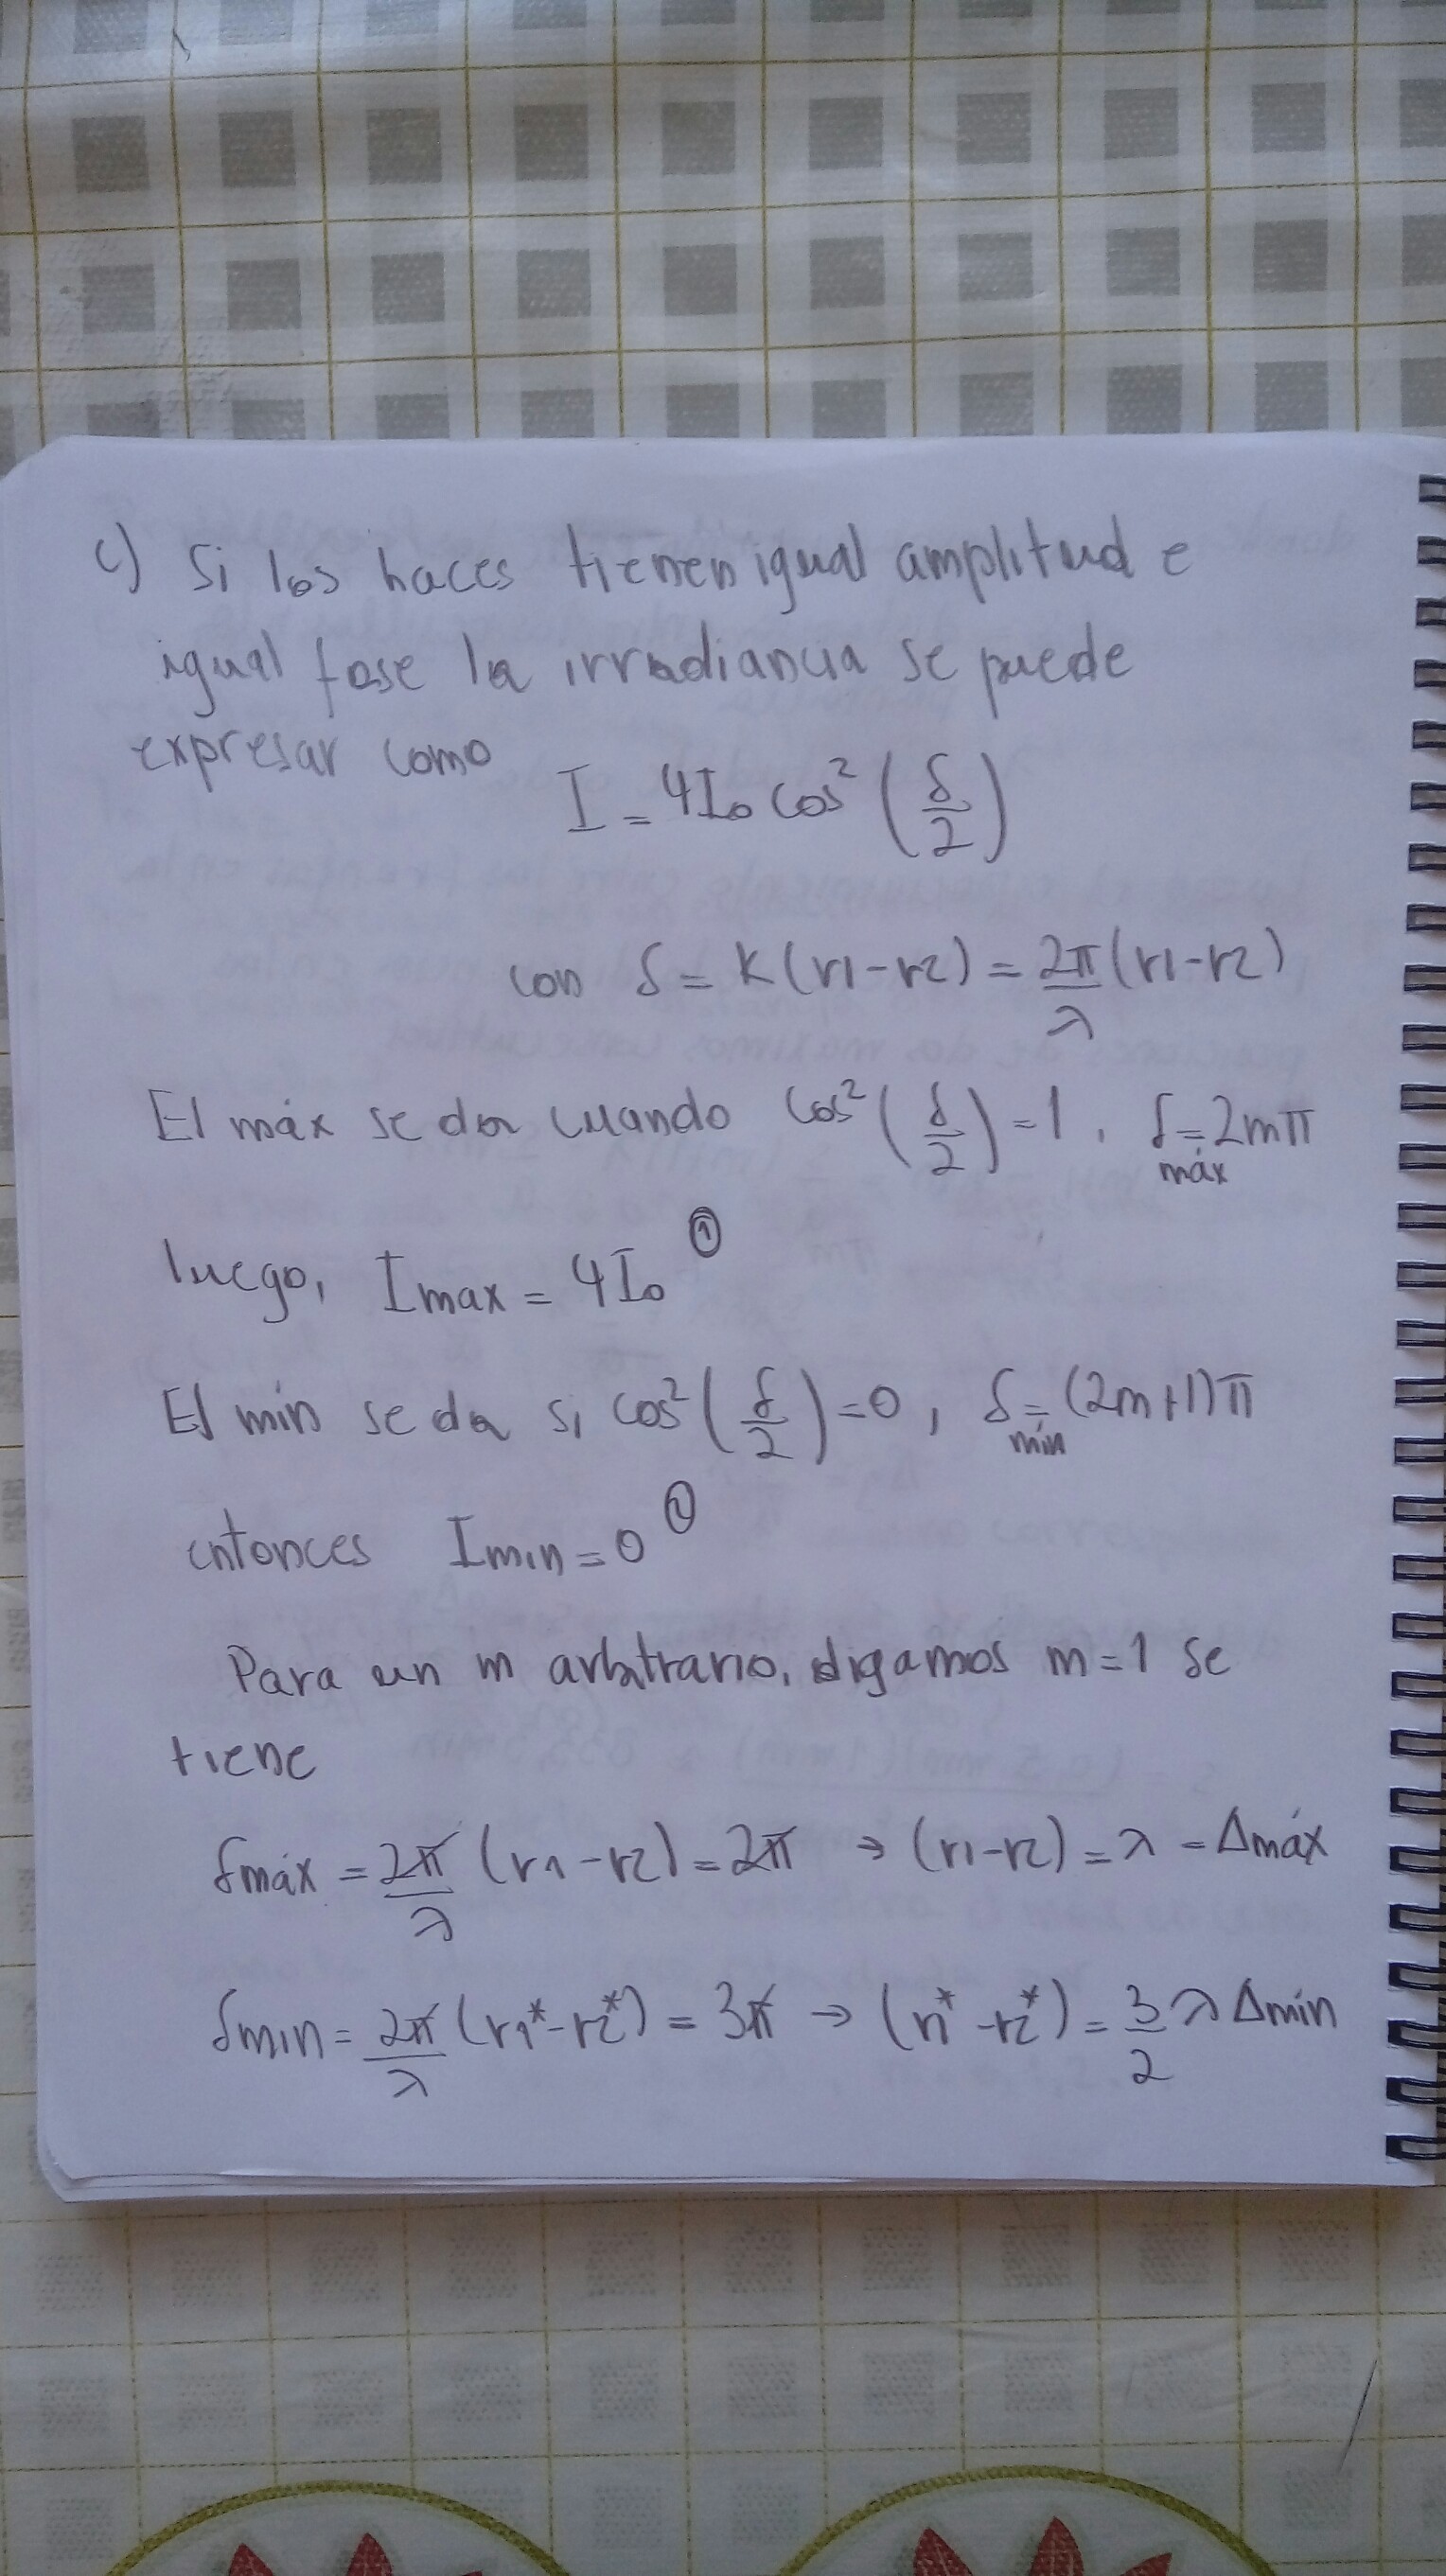 c) Si los haces tienen igual amplitud e
igual fase la irradiancia se puede
expresar como
I = 4I₀ cos² (δ/2)
con δ = K(r1-r2) = 2π/λ (r1-r2)
El máx se da cuando cos² (δ/2) = 1, δmáx = 2mπ
luego, Imax = 4I₀ ①
El mín se da si cos² (δ/2) = 0, δmín = (2m+1)π
entonces Imin = 0 ①
Para un m arbitrario, digamos m=1 se
tiene
δmáx = 2π/λ (r1-r2) = 2π → (r1-r2) = λ = Δmáx
δmin = 2π/λ (r1*-r2*) = 3π → (r1*-r2*) = 3/2 λ Δmín